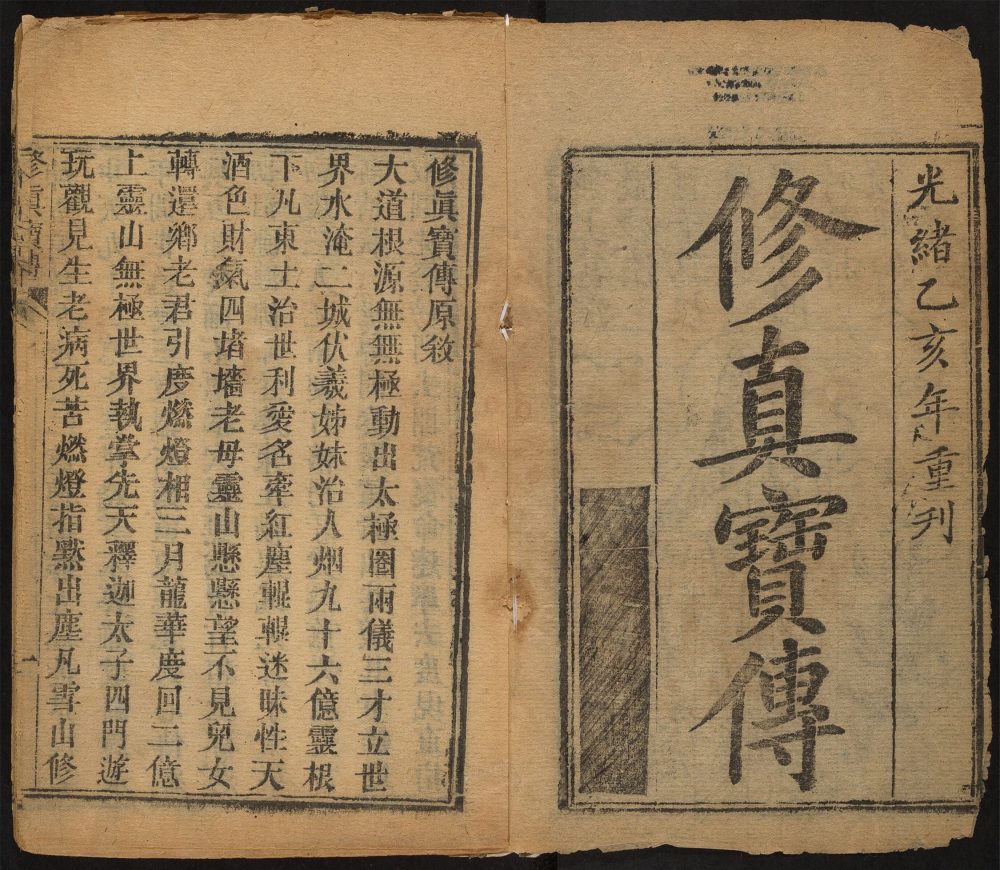 光緒乙亥年重刊
修真寶傳
修眞寶傳原敘
大道根源無無極動出太極圈兩儀三才立世
界水淹二城伏羲姊妹治人烟九十六億靈根
下凡東土治世利愛名牽紅塵輥輥迷昧性天
酒色財氣四堵墻老母靈山懸懸望不見兒女
轉還鄉老君引度燃燈相三月龍華度回二億
上靈山無極世界執掌先天釋迦太子四門遊
玩觀見生老病死苦燃燈指㸃出塵凡雪山修
修眞寶傳
一